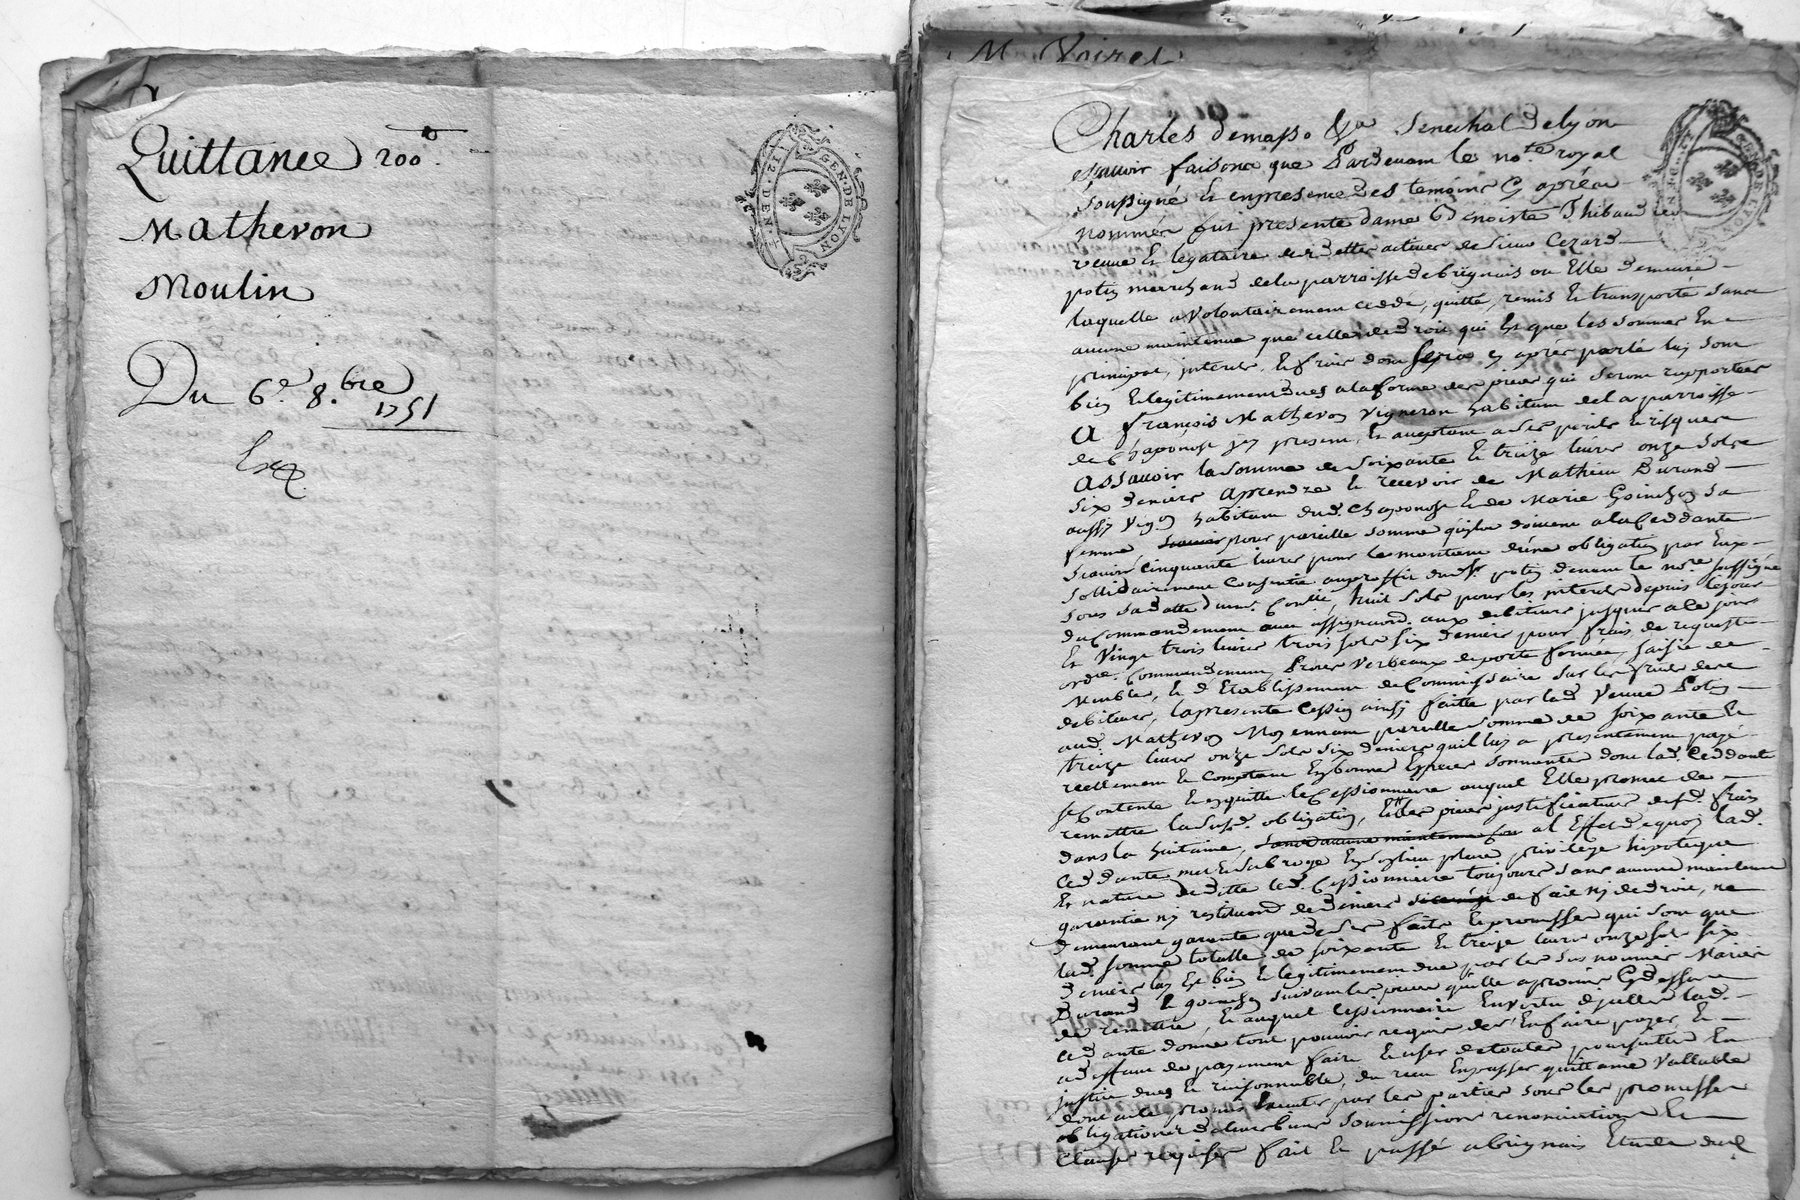 Quittance 200#
Matheron
Moulin
Du 6e. 8.bre
1751
Exp.
GEN. DE LYON
12. DEN.
M Voiret
Charles demasso &a Senechal de lyon
scavoir faisons que Pardevant le no.re royal
soussigné et en presence des temoins cy apres
nommés fut presente dame Benoiste Thibaud
veuve et legataire de dettes actives de sieur Cezard
potin marchand de la parroisse de brignais ou Elle demeure
laquelle a volontairement ceddé, quitté, remis et transporté sans
aucune maintenue que celle de droit qui est que les sommes En
principal, interets, et frais dont sera cy après parlé luy sont
bien et legitimement dues a la forme des pieces qui seront rapportées
A françois Matheron Vigneron habitant de la parroisse
de Chaponost icy present, et acceptant a ses perils et risques
Assavoir la somme de soixante et treize livres onze sols
six deniers a prendre et recevoir de Mathieu Durand
aussy vig.on habitant dud. Chaponost et de Marie Goinchon sa
femme pour pareille somme qu'ils doivent a la Ceddante
scavoir cinquante livres pour le montant d'une obligation par Eux
sollidairement Consentie au proffit dud. sr. potin devant le no.re soussigné
sous sa datte huit sols pour les interets depuis le jour
du Commandement aux debiteurs jusques a ce jour
Et vingt trois livres trois sols six deniers pour frais de requeste
ord.ce Commandement, Procès verbeaux de porte fermée, saisie de
Meubles, et d'Etablissement de Commissaire sur les fruits des
debiteurs, la presente Cession ainsy faitte par lad. Veuve Potin
aud. Matheron Moyennant pareille somme de soixante et
treize livres onze sols six deniers qu'il luy a presentement payé
reellement et comptant En bonnes Especes sonnantes dont lad. Ceddante
se contente et en quitte le Cessionnaire auquel Elle promet de
remettre la susd. obligation, et les pieces justificatives desd. frais
dans la huitaine, sans aucune maintenue al Effet de quoy lad.
Ceddante met et subroge En son lieu place privilege hipoteque
Et nature de dette led. Cessionnaire toujours sans aucune maintenue
garantie ny restitution de deniers de fait ny de droit, ne
demeurant garante que de ses faits et promesses qui sont que
lad. somme totalle de soixante et treize livres onze sols six
deniers luy Est bien et legitimement due par les sus nommés Mariés
Durand et goinchon suivant les pieces qu'elle a promis Cy dessus
de remettre, et auquel Cessionnaire En vertu d'icelles lad.
Ceddante donne tout pouvoir requis de s'En faire payer, Et
a deffaut de payement faire et user de toutes poursuittes En
justice dues et raisonnables, du reçu En passer quittance Vallable
dont ainsy promis par les parties sous les promesses
obligations de leurs biens soumissions renonciations Et
clauses requises fait et passé a brignais Etude dud